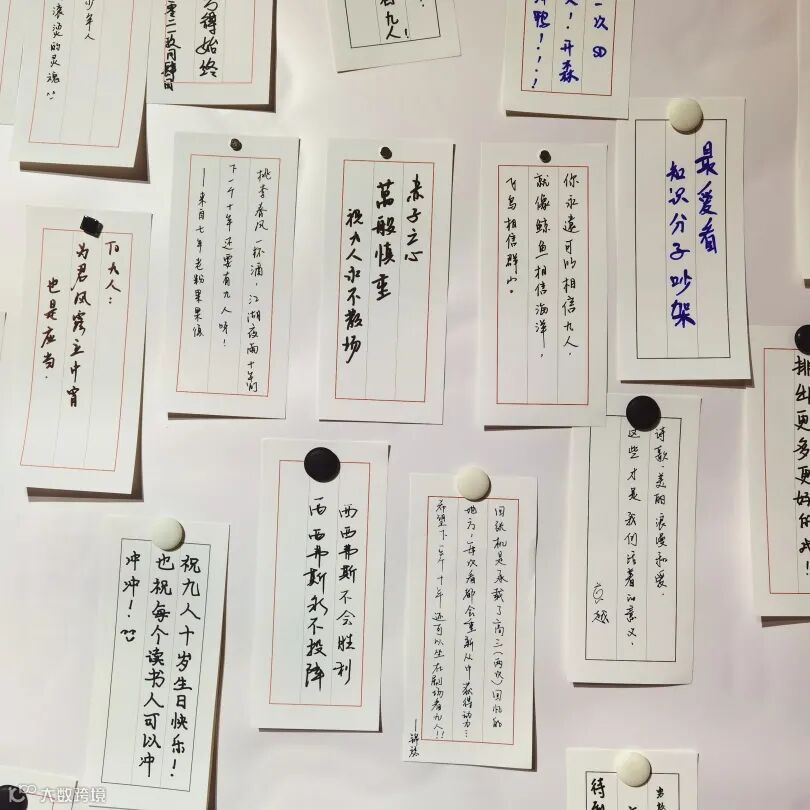 少年人
滚烫的灵魂
得始终
有九人！
一次 SD
！开森
鸭！！！！
To 九人：
为君风露立中宵
也是应当.
桃李春风一杯酒，江湖夜雨十年灯
下一个十年还要有九人呀！
——来自七年老粉果果侠
赤子之心
萬般慎重
祝九人永不散场
你永遠可以相信九人，
就像鲸鱼相信海洋，
飞鸟相信群山。
最爱看
知识分子吵架
排出更多更好的戏！
祝九人十岁生日快乐！
也祝每个读书人可以冲
冲冲！
西西弗斯不会胜利
西西弗斯永不投降
回溯机是承载了高三（两次）回忆的
地方，每次看都会重新从中获得动力…
希望下一个十年还可以坐在剧场看九人！！
诗歌、美丽、浪漫和爱，
这些才是我们活着的意义。
大数跨境